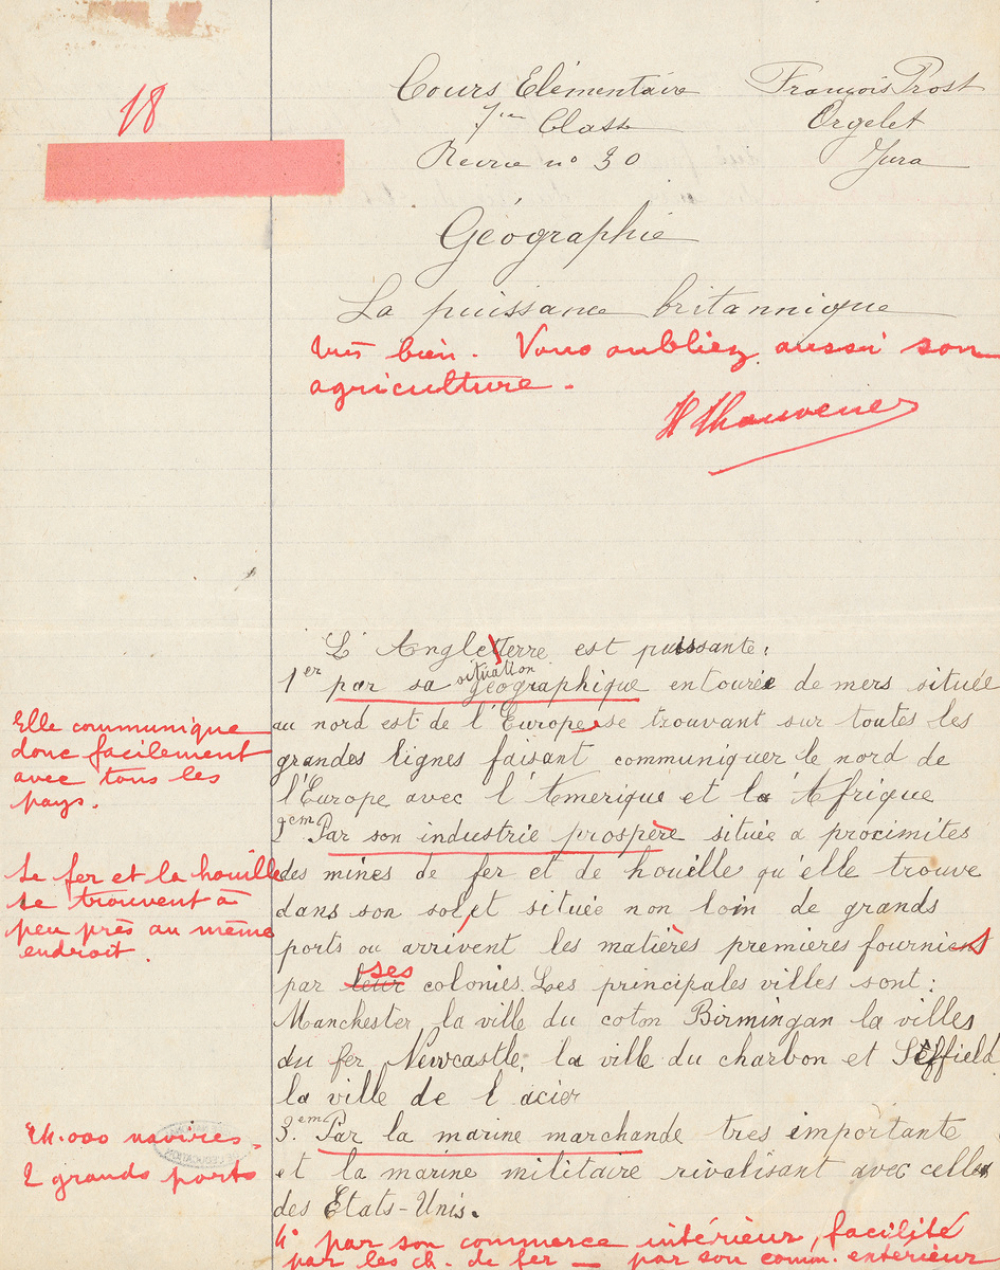 18
Cours Elémentaire François Prost
Class Orgelet
nº 30 Jura
Géographie
La puissance britannique
Très bien. Vous oubliez aussi son
agriculture.
L'Angleterre est puissante :
1er par sa situation géographique entourée de mers située
au nord est de l'Europe se trouvant sur toutes les
Elle communique
donc facilement
avec tous les
pays.
grandes lignes faisant communiquer le nord de
l'Europe avec l'Amerique et la Afrique
2em Par son industrie prospère située a proximites
Le fer et la houille
se trouvent à
peu près au même
endroit.
des mines de fer et de houille qu'elle trouve
dans son sol, et située non loin de grands
ports ou arrivent les matières premieres fournies
par leur ses colonies. Les principales villes sont :
Manchester, la ville du coton Birmingan la villes
du fer Newcastle, la ville du charbon et Séffield
la ville de l acier
3.eme Par la marine marchande tres importante
000 navires.
2 grands ports
et la marine militaire rivalisant avec celle
des Etats-Unis.
4° par son commerce intérieur, facilité
par les ch. de fer — par son comm. extérieur